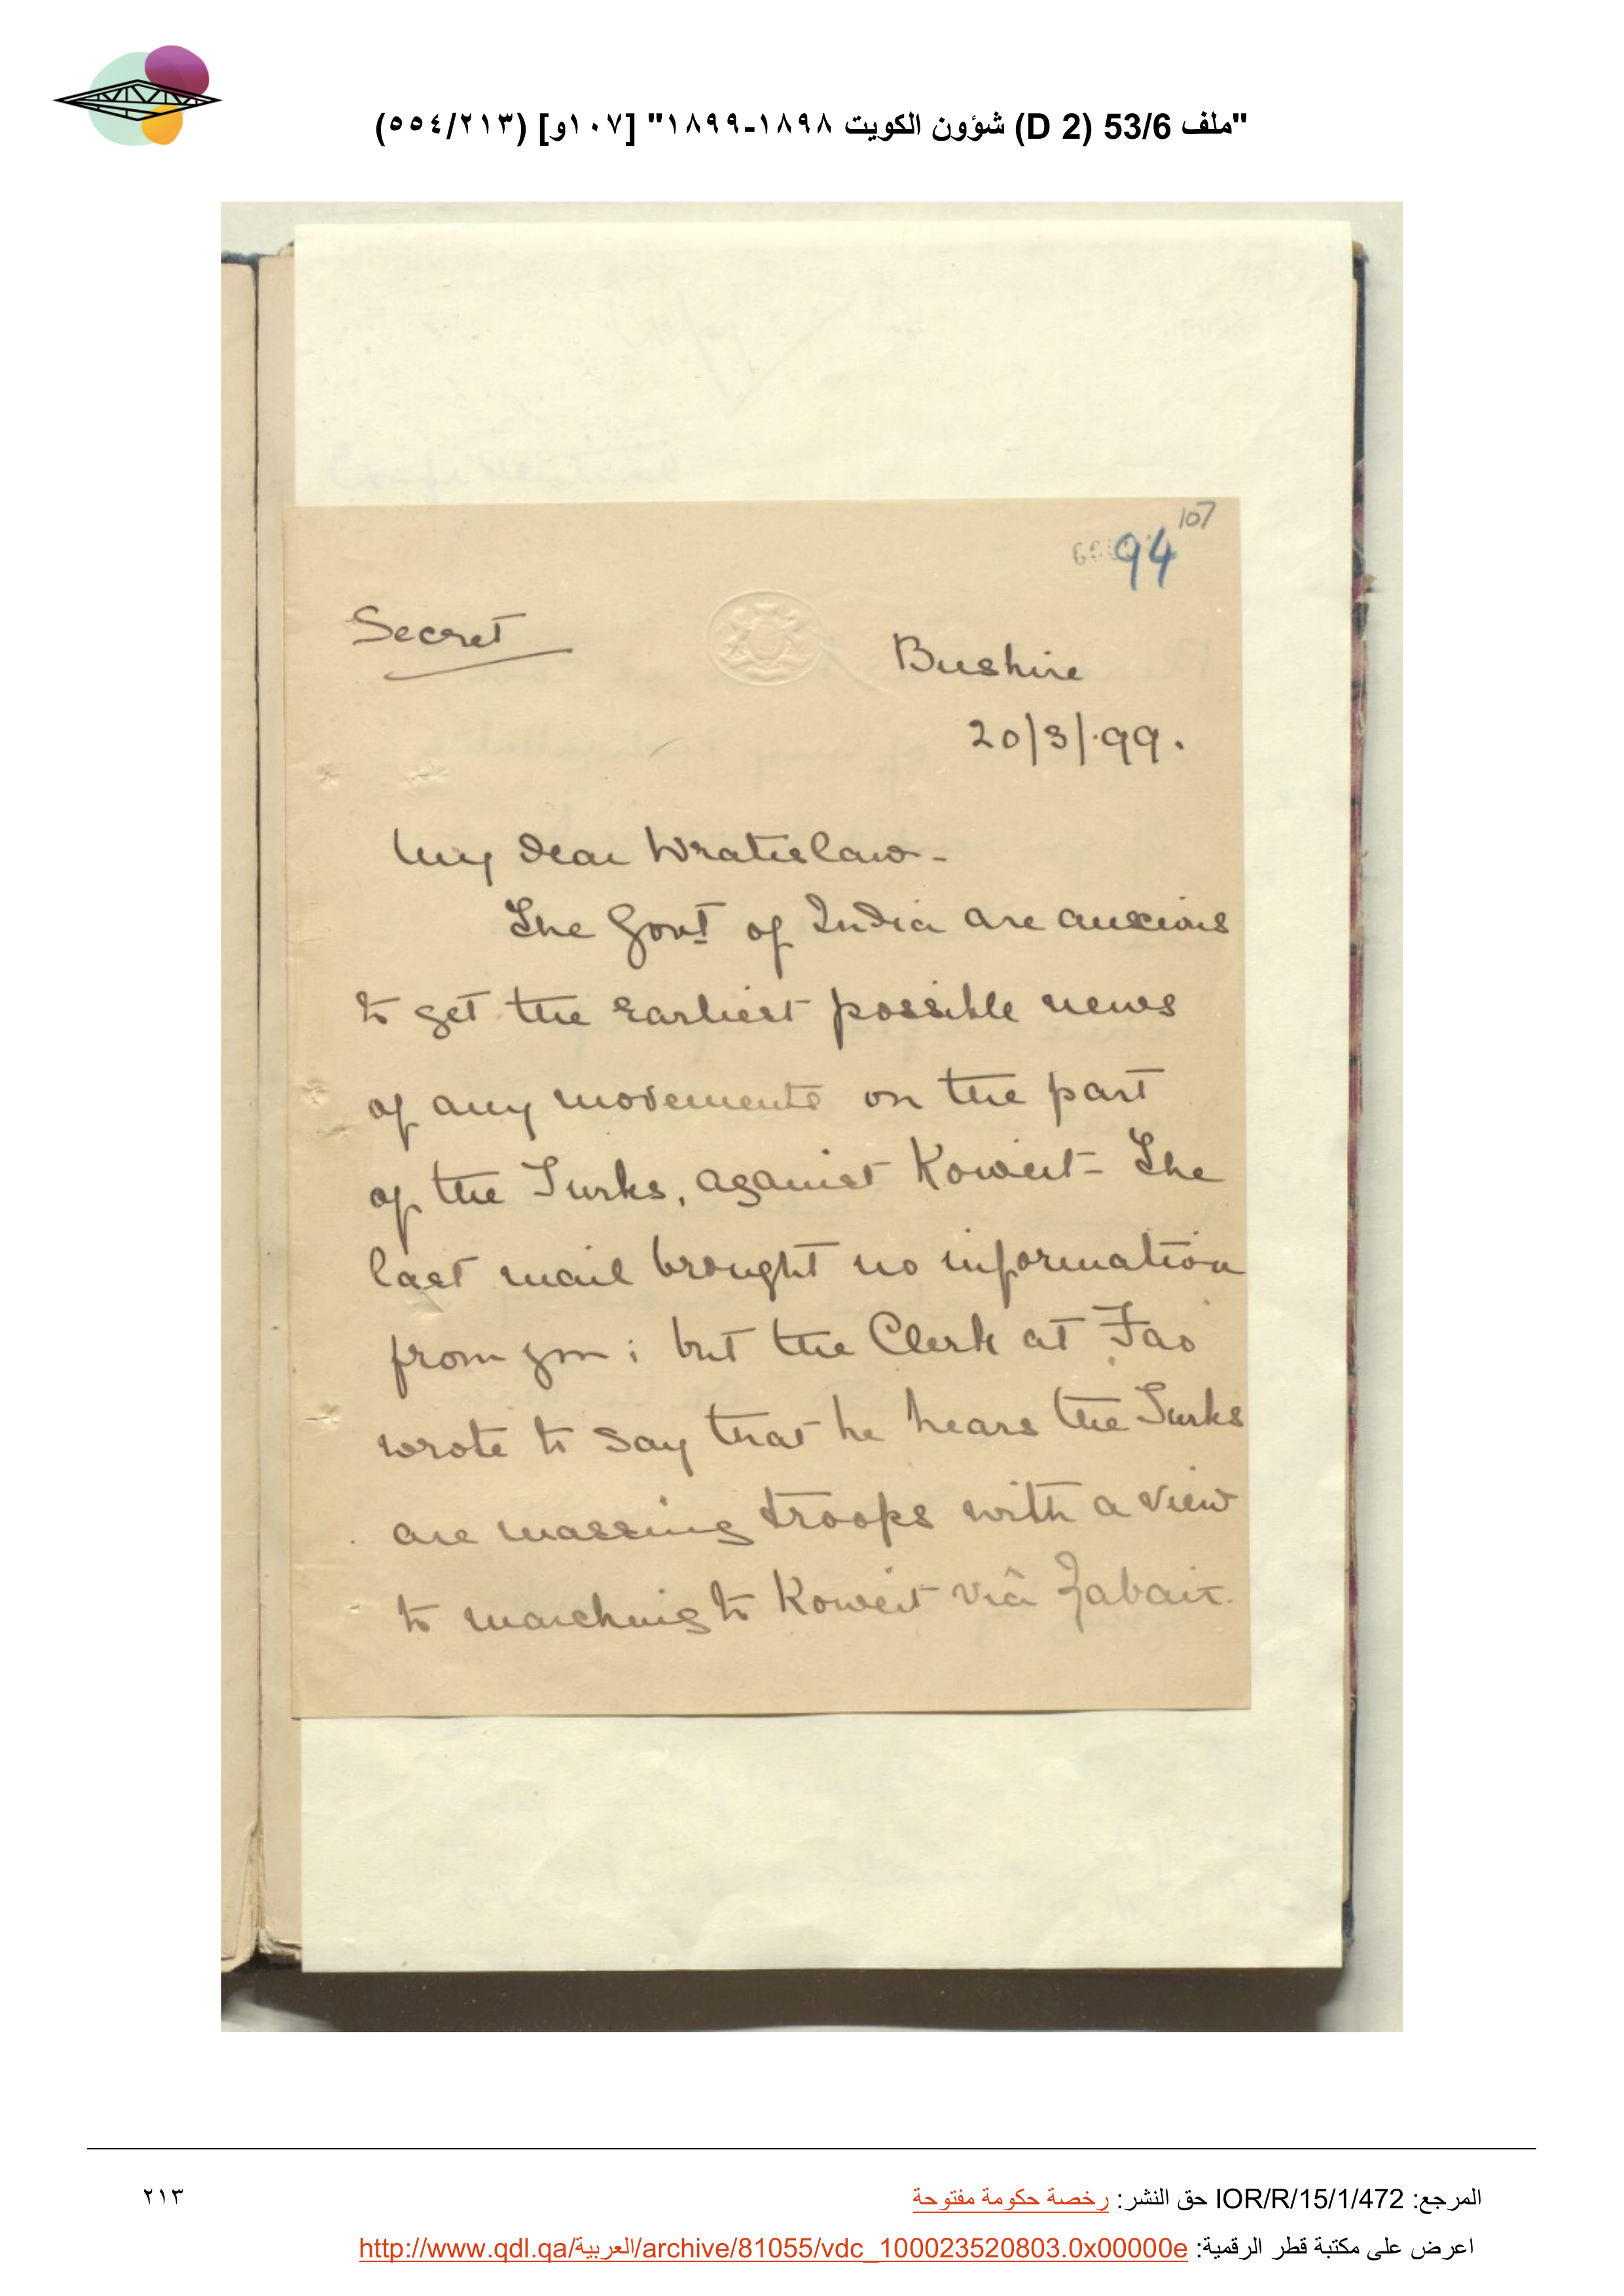 "ملف 53/6 (D 2) شؤون الكويت ١٨٩٨-١٨٩٩" [١٠٧و] (٥٥٤/٢١٣)
107
94
Secret
Bushire
20/3/.99.
My dear Wratislaw -
The Govt of India are anxious
to get the earliest possible news
of any movements on the part
of the Turks, against Koweit - The
last mail brought no information
from you ; but the Clerk at Fao
wrote to say that he hears the Turks
are massing troops with a view
to marching to Koweit viâ Zabair.
المرجع: IOR/R/15/1/472 حق النشر: رخصة حكومة مفتوحة
٢١٣
اعرض على مكتبة قطر الرقمية: http://www.qdl.qa/العربية/archive/81055/vdc_100023520803.0x00000e